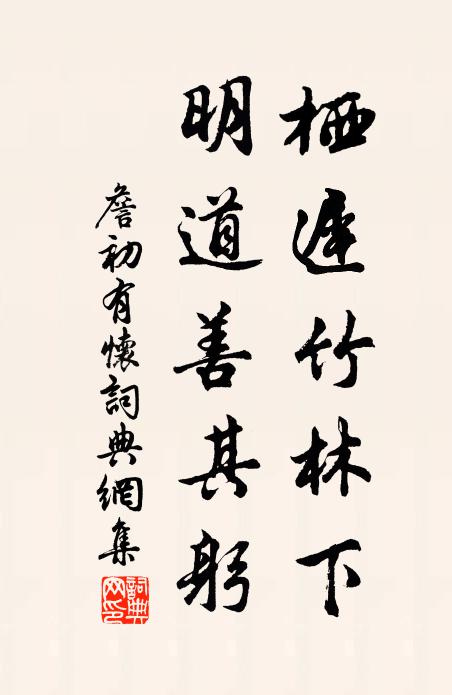 栖遲竹林下
明道善其躬
詹初有懷詞典網集
詞典網印